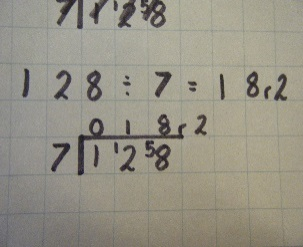 7 1 ¹2 ⁵8
1 2 8 ÷ 7 = 1 8 r 2
0 1 8 r 2
7 1 ¹2 ⁵8